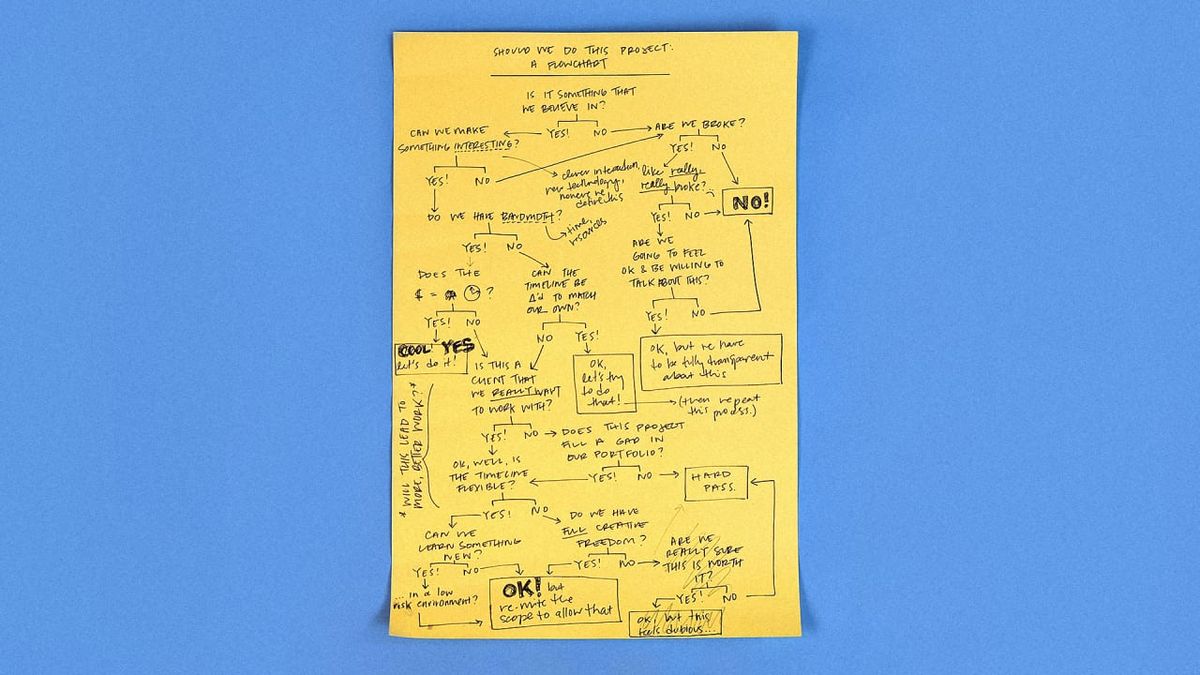 SHOULD WE DO THIS PROJECT:
A FLOWCHART
IS IT SOMETHING THAT
WE BELIEVE IN?
YES! NO
ARE WE BROKE?
YES! NO
CAN WE MAKE
SOMETHING INTERESTING?
YES! NO
clever interaction,
new technology,
define this
like really,
really broke?
YES! NO
NO!
DO WE HAVE BANDWIDTH?
time,
resources
YES! NO
ARE WE
GOING TO FEEL
OK & BE WILLING TO
TALK ABOUT THIS?
YES! NO
DOES THE
$ = ?
YES! NO
CAN THE
TIMELINE BE
Δ'd TO MATCH
OUR OWN?
NO YES!
COOL! YES
let's do it!
OK, but we have
to be fully transparent
about this
IS THIS A
CLIENT THAT
WE REALLY WANT
TO WORK WITH?
YES! NO
OK,
let's try
to do
that!
(then repeat
this process.)
* WILL THIS LEAD TO
MORE, BETTER WORK? *
DOES THIS PROJECT
FILL A GAP IN
OUR PORTFOLIO?
YES! NO
HARD
PASS.
OK, WELL, IS
THE TIMELINE
FLEXIBLE?
YES! NO
DO WE HAVE
FULL CREATIVE
FREEDOM?
YES! NO
CAN WE
LEARN SOMETHING
NEW?
YES! NO
ARE WE
REALLY SURE
THIS IS WORTH
IT?
YES! NO
... in a low
risk environment?
OK! but
re-write the
scope to allow that
OK, but this
feels dubious...